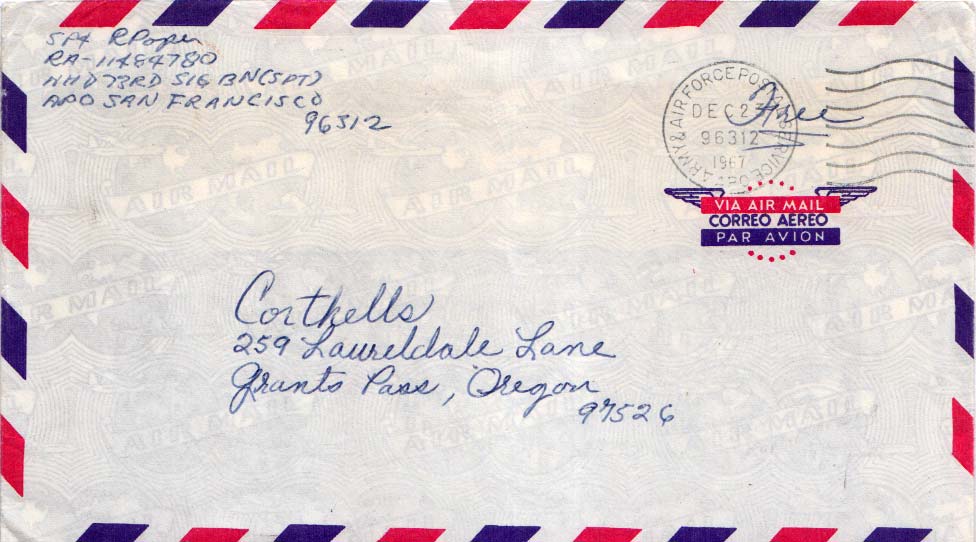 SP4 R Roper
RA-11484780
HHD 73RD SIG BN (SPT)
APO SAN FRANCISCO
96312
ARMY & AIR FORCE POSTAL SERVICE
DEC 23
96312
1967
APO
Free
VIA AIR MAIL
CORREO AEREO
PAR AVION
Corthells
259 Laureldale Lane
Grants Pass, Oregon
97526
AIR MAIL
AIR MAIL
AIR MAIL
AIR MAIL
AIR MAIL
AIR MAIL